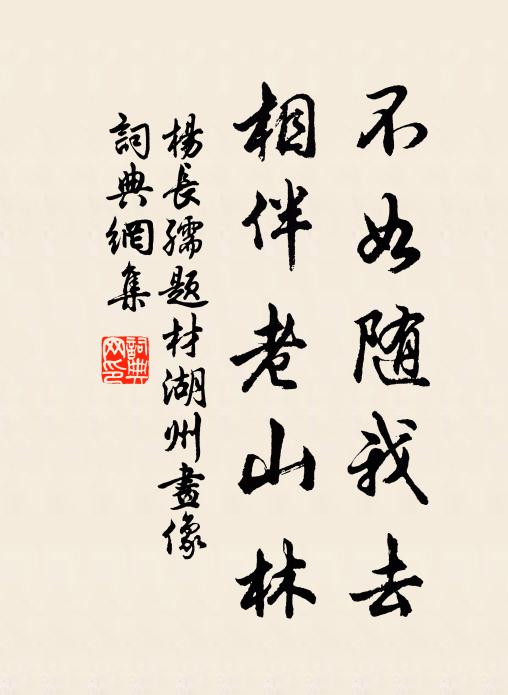 不如随我去
相伴老山林
楊長孺题材湖州畫像
詞典網集
詞典網印